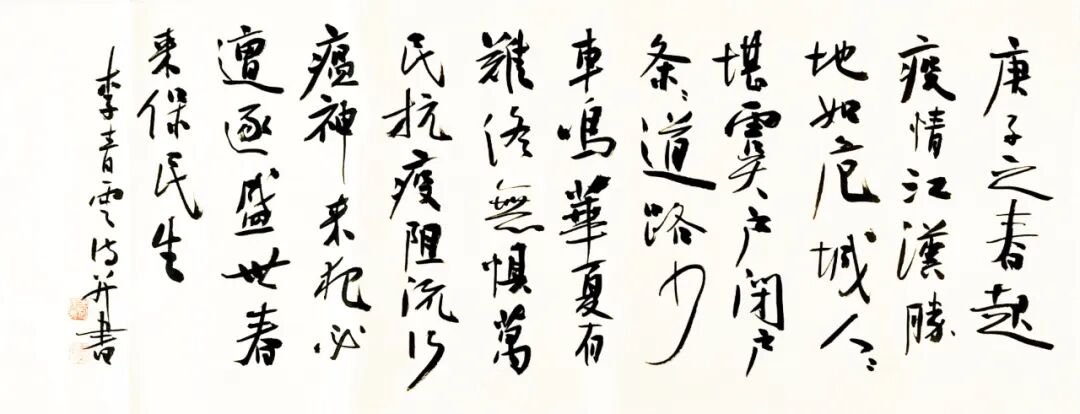 庚子之春起
疫情江漢勝
地如危城人〻
堪户閉户
条〻道路少
車鳴華夏有
難無惧萬
民抗疫阻流行
瘟神来犯必
遭逐盛世春
来保民生
李青雲詩并書